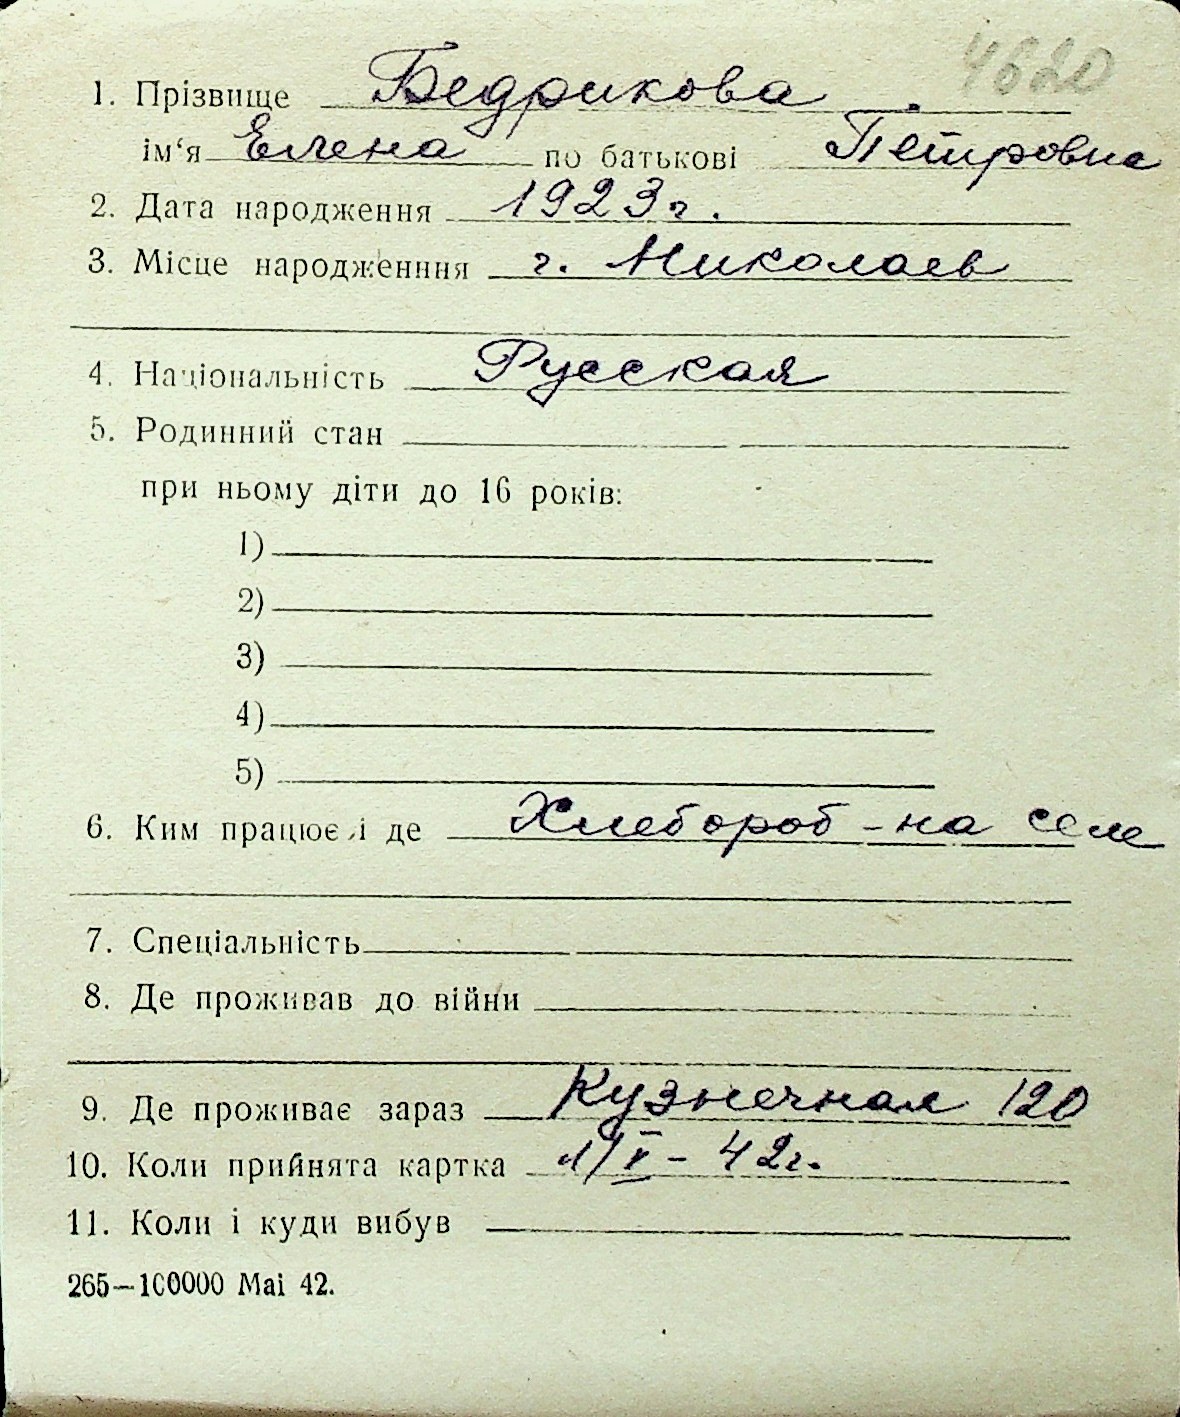 4620
1. Прізвище Бедрикова
ім‘я Елена по батькові Петровна
2. Дата народження 1923 г.
3. Місце народженння г. Николаев
4. Національність Русская
5. Родинний стан
при ньому діти до 16 років:
1)
2)
3)
4)
5)
6. Ким працює і де Хлебороб - на селе
7. Спеціальність
8. Де проживав до війни
9. Де проживає зараз Кузнечная 120
10. Коли прийнята картка - 42 г.
11. Коли і куди вибув
265—100000 Mai 42.